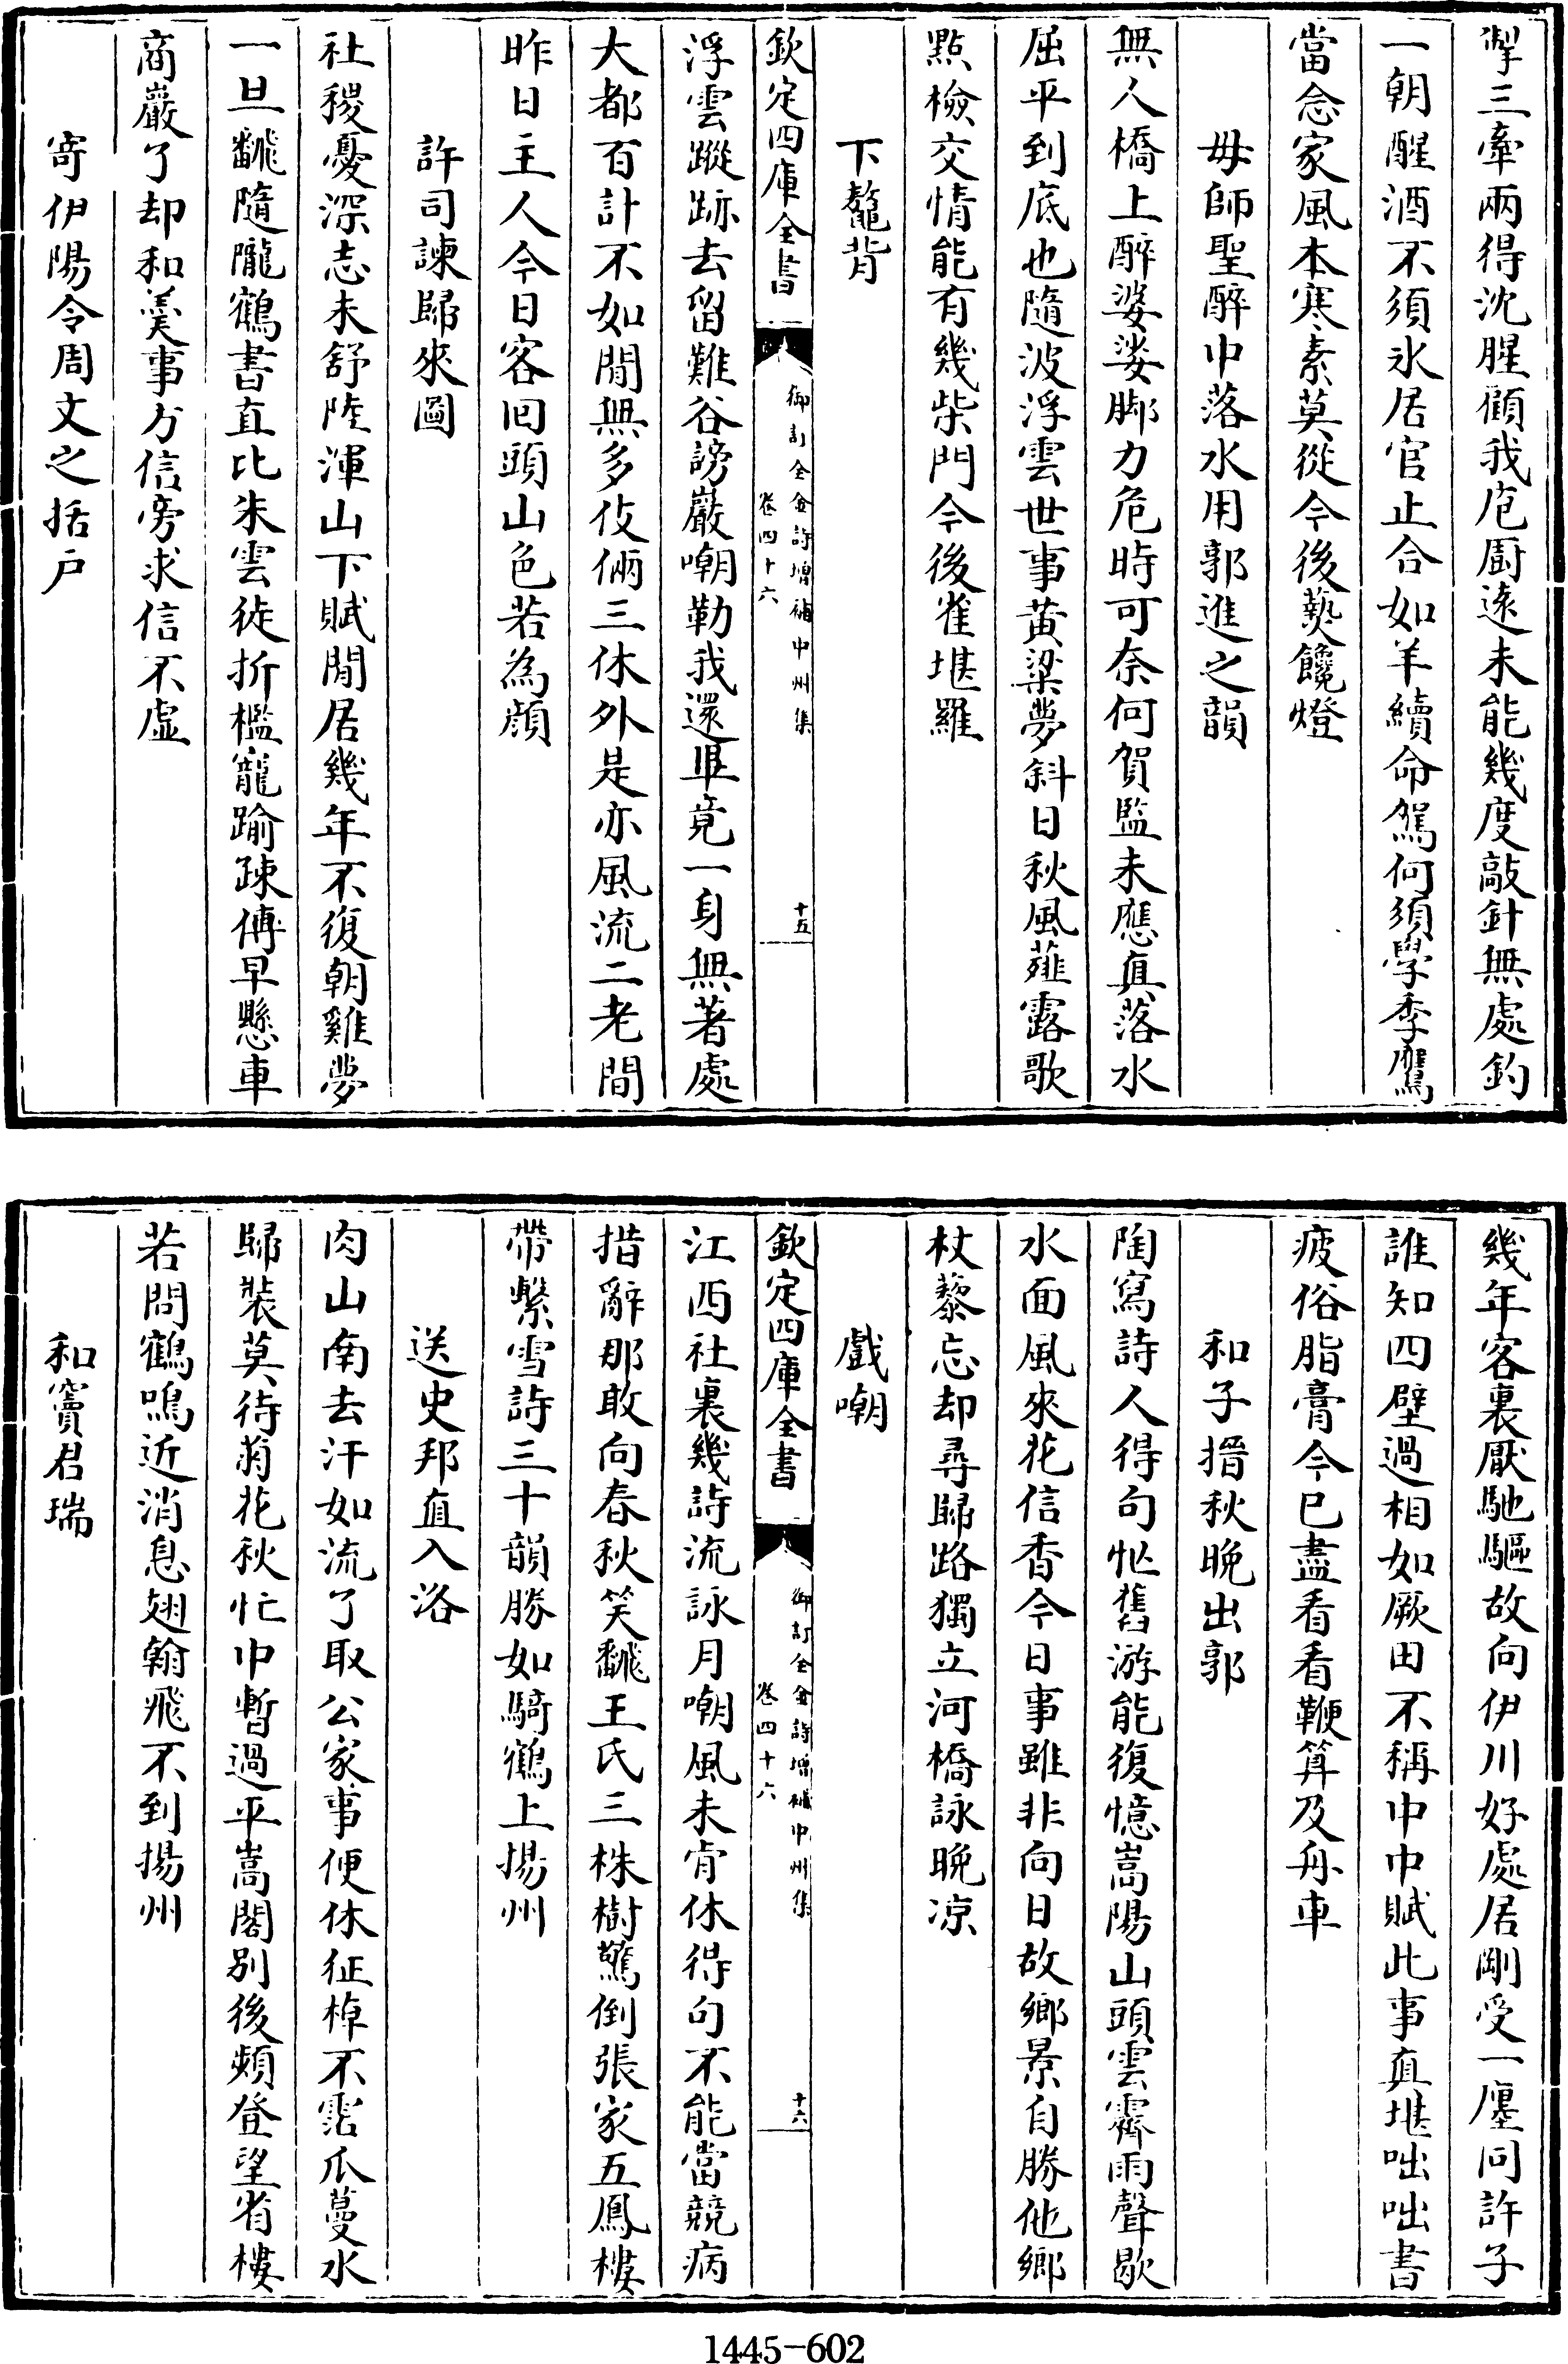 掣三牽兩得沈腥顧我庖厨遠未能幾度敲針無處釣
一朝醒酒不須氷居官止合如羊續命駕何須學季鷹
當念家風本寒素莫從今後爇饞燈
毋師聖醉中落水用郭進之韻
無人橋上醉婆娑脚力危時可奈何賀監未應真落水
屈平到底也隨波浮雲世事黄粱夢斜日秋風薤露歌
㸃檢交情能有幾柴門今後雀堪羅
下鼇背
欽定四庫全書
御訂全金詩增補中州集
卷四十六
十五
浮雲蹤跡去留難谷謗巖嘲勒我還畢竟一身無著處
大都百計不如閒無多伎倆三休外是亦風流二老間
昨日主人今日客囘頭山色若為顔
許司諫歸來圖
社稷憂深志未舒陸渾山下賦閒居幾年不復朝雞夢
一旦飜隨隴鶴書直比朱雲徒折檻寵踰疎傅早懸車
商巖了却和羹事方信旁求信不虛
寄伊陽令周文之括户
幾年客裏厭馳驅故向伊川好處居剛受一廛同許子
誰知四壁過相如厥田不稱中中賦此事真堪咄咄書
疲俗脂膏今已盡看看鞭算及舟車
和子搢秋晚出郭
陶寫詩人得句忙舊游能復憶嵩陽山頭雲霽雨聲歇
水面風來花信香今日事雖非向日故鄉景自勝他鄉
杖藜忘却尋歸路獨立河橋詠晚凉
戲嘲
欽定四庫全書
御訂全金詩增補中州集
卷四十六
十六
江西社裏幾詩流詠月嘲風未肯休得句不能當競病
措辭那敢向春秋笑飜王氏三株樹驚倒張家五鳳樓
帶繫雪詩三十韻勝如騎鶴上揚州
送史邦直入洛
肉山南去汗如流了取公家事便休征棹不霑瓜蔓水
歸裝莫待菊花秋忙中暫過平嵩閣别後頻登望省樓
若問鶴鳴近消息翅翰飛不到揚州
和竇君瑞
1445-602